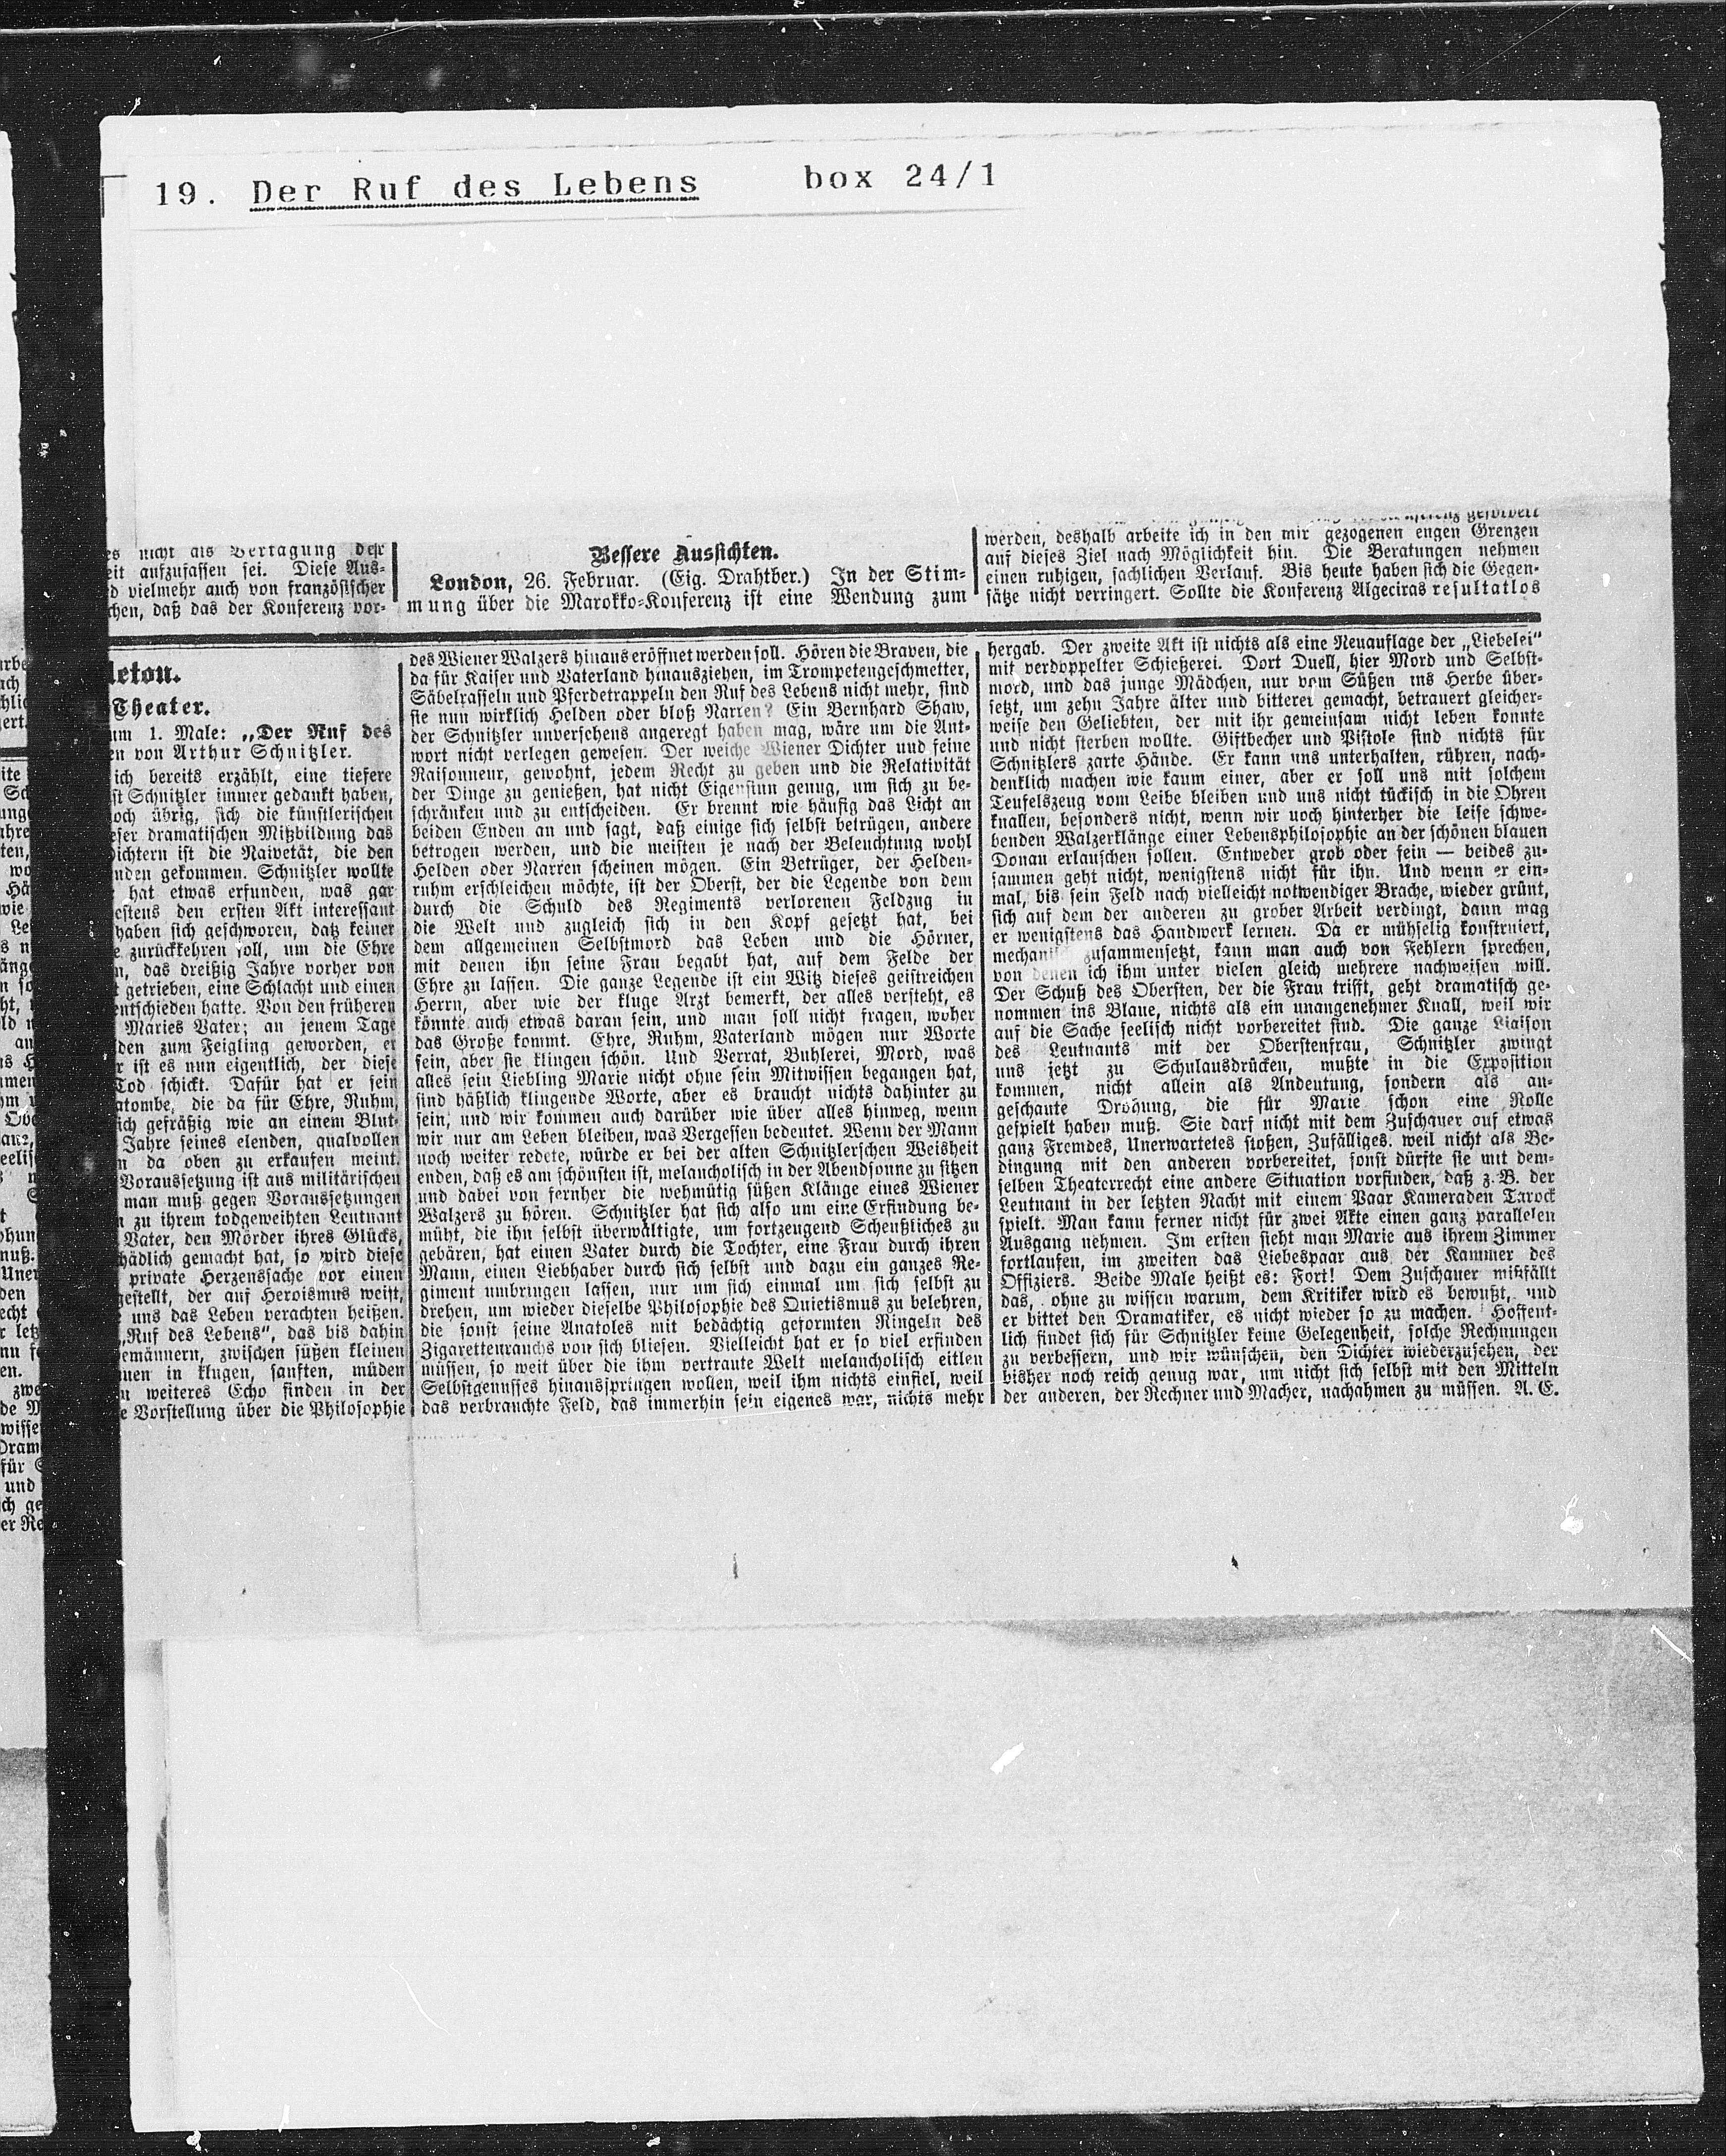 19. Der Ruf des Lebens box 24/1
es nicht als Vertagung der
eit aufzufassen sei. Diese Aus-
d vielmehr auch von französischer
chen, daß das der Konferenz vor-
Bessere Aussichten.
London, 26. Februar. (Eig. Drahtber.) In der Stim-
mung über die Marokko-Konferenz ist eine Wendung zum
werden, deshalb arbeite ich in den mir gezogenen engen Grenzen
auf dieses Ziel nach Möglichkeit hin. Die Beratungen nehmen
einen ruhigen, sachlichen Verlauf. Bis heute haben sich die Gegen-
sätze nicht verringert. Sollte die Konferenz Algeciras resultatlos
leton.
Theater.
um 1. Male: „Der Ruf des
en von Arthur Schnitzler.
ich bereits erzählt, eine tiefere
st Schnitzler immer gedankt haben,
och übrig, sich die künstlerischen
eser dramatischen Mißbildung das
Dichtern ist die Naivetät, die den
nden gekommen. Schnitzler wollte
hat etwas erfunden, was gar
estens den ersten Akt interessant
haben sich geschworen, daß keiner
e zurückkehren soll, um die Ehre
n, das dreißig Jahre vorher von
t getrieben, eine Schlacht und einen
entschieden hatte. Von den früheren
Maries Vater; an jenem Tage
den zum Feigling geworden, er
r ist es nun eigentlich, der diese
Tod schickt. Dafür hat er sein
atombe, die da für Ehre, Ruhm,
ich gefräßig wie an einem Blut-
Jahre seines elenden, qualvollen
n da oben zu erkaufen meint.
Voraussetzung ist aus militärischen
man muß gegen Voraussetzungen
n zu ihrem todgeweihten Leutnant
Vater, den Mörder ihres Glücks,
hädlich gemacht hat, so wird diese
private Herzenssache vor einen
gestellt, der auf Heroismus weist,
uns das Leben verachten heißen.
„Ruf des Lebens“, das bis dahin
emännern, zwischen süßen kleinen
nen in klugen, sanften, müden
n weiteres Echo finden in der
e Vorstellung über die Philosophie
des Wiener Walzers hinaus eröffnet werden soll. Hören die Braven, die
da für Kaiser und Vaterland hinausziehen, im Trompetengeschmetter,
Säbelrasseln und Pferdetrappeln den Ruf des Lebens nicht mehr, sind
sie nun wirklich Helden oder bloß Narren? Ein Bernhard Shaw,
der Schnitzler unversehens angeregt haben mag, wäre um die Ant-
wort nicht verlegen gewesen. Der weiche Wiener Dichter und feine
Raisonneur, gewohnt, jedem Recht zu geben und die Relativität
der Dinge zu genießen, hat nicht Eigensinn genug, um sich zu be-
schränken und zu entscheiden. Er brennt wie häufig das Licht an
beiden Enden an und sagt, daß einige sich selbst betrügen, andere
betrogen werden, und die meisten je nach der Beleuchtung wohl
Helden oder Narren scheinen mögen. Ein Betrüger, der Helden-
ruhm erschleichen möchte, ist der Oberst, der die Legende von dem
durch die Schuld des Regiments verlorenen Feldzug in
die Welt und zugleich sich in den Kopf gesetzt hat, bei
dem allgemeinen Selbstmord das Leben und die Hörner,
mit denen ihn seine Frau begabt hat, auf dem Felde der
Ehre zu lassen. Die ganze Legende ist ein Witz dieses geistreichen
Herrn, aber wie der kluge Arzt bemerkt, der alles versteht, es
könnte auch etwas daran sein, und man soll nicht fragen, woher
das Große kommt. Ehre, Ruhm, Vaterland mögen nur Worte
sein, aber sie klingen schön. Und Verrat, Buhlerei, Mord, was
alles sein Liebling Marie nicht ohne sein Mitwissen begangen hat,
sind häßlich klingende Worte, aber es braucht nichts dahinter zu
sein, und wir kommen auch darüber wie über alles hinweg, wenn
wir nur am Leben bleiben, was Vergessen bedeutet. Wenn der Mann
noch weiter redete, würde er bei der alten Schnitzlerschen Weisheit
enden, daß es am schönsten ist, melancholisch in der Abendsonne zu sitzen
und dabei von fernher die wehmütig süßen Klänge eines Wiener
Walzers zu hören. Schnitzler hat sich also um eine Erfindung be-
müht, die ihn selbst überwältigte, um fortzeugend Scheußliches zu
gebären, hat einen Vater durch die Tochter, eine Frau durch ihren
Mann, einen Liebhaber durch sich selbst und dazu ein ganzes Re-
giment umbringen lassen, nur um sich einmal um sich selbst zu
drehen, um wieder dieselbe Philosophie des Quietismus zu belehren,
die sonst seine Anatoles mit bedächtig geformten Ringeln des
Zigarettenrauchs von sich bliesen. Vielleicht hat er so viel erfinden
müssen, so weit über die ihm vertraute Welt melancholisch eitlen
Selbstgenusses hinausspringen wollen, weil ihm nichts einfiel, weil
das verbrauchte Feld, das immerhin sein eigenes war, nichts mehr
hergab. Der zweite Akt ist nichts als eine Neuauflage der „Liebelei“
mit verdoppelter Schießerei. Dort Duell, hier Mord und Selbst-
mord, und das junge Mädchen, nur vom Süßen ins Herbe über-
setzt, um zehn Jahre älter und bitterer gemacht, betrauert gleicher-
weise den Geliebten, der mit ihr gemeinsam nicht leben konnte
und nicht sterben wollte. Giftbecher und Pistole sind nichts für
Schnitzlers zarte Hände. Er kann uns unterhalten, rühren, nach-
denklich machen wie kaum einer, aber er soll uns mit solchem
Teufelszeug vom Leibe bleiben und uns nicht tückisch in die Ohren
knallen, besonders nicht, wenn wir noch hinterher die leise schwe-
benden Walzerklänge einer Lebensphilosophie an der schönen blauen
Donau erlauschen sollen. Entweder grob oder fein — beides zu-
sammen geht nicht, wenigstens nicht für ihn. Und wenn er ein-
mal, bis sein Feld nach vielleicht notwendiger Brache, wieder grünt,
sich auf dem der anderen zu grober Arbeit verdingt, dann mag
er wenigstens das Handwerk lernen. Da er mühselig konstruiert,
zusammensetzt, kann man auch von Fehlern sprechen,
von denen ich ihm unter vielen gleich mehrere nachweisen will.
Der Schuß des Obersten, der die Frau trifft, geht dramatisch ge-
nommen ins Blaue, nichts als ein unangenehmer Knall, weil wir
auf die Sache seelisch nicht vorbereitet sind. Die ganze Liaison
des Leutnants mit der Oberstenfrau, Schnitzler zwingt
uns jetzt zu Schulausdrücken, mußte in die Exposition
kommen, nicht allein als Andeutung, sondern als an-
geschaute Drohung, die für Marie schon eine Rolle
gespielt haben muß. Sie darf nicht mit dem Zuschauer auf etwas
ganz Fremdes, Unerwartetes stoßen, Zufälliges, weil nicht als Be-
dingung mit den anderen vorbereitet, sonst dürfte sie mit dem-
selben Theaterrecht eine andere Situation vorfinden, daß z. B. der
Leutnant in der letzten Nacht mit einem Paar Kameraden Tarock
spielt. Man kann ferner nicht für zwei Akte einen ganz parallelen
Ausgang nehmen. Im ersten sieht man Marie aus ihrem Zimmer
fortlaufen, im zweiten das Liebespaar aus der Kammer des
Offiziers. Beide Male heißt es: Fort! Dem Zuschauer mißfällt
das, ohne zu wissen warum, dem Kritiker wird es bewußt, und
er bittet den Dramatiker, es nicht wieder so zu machen. Hoffent-
lich findet sich für Schnitzler keine Gelegenheit, solche Rechnungen
zu verbessern, und wir wünschen, den Dichter wiederzusehen, der
bisher noch reich genug war, um nicht sich selbst mit den Mitteln
der anderen, der Rechner und Macher, nachahmen zu müssen. A. E.